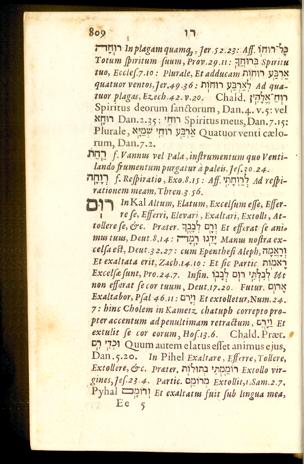 809 רו
רוּחָה In plagam quamq, Jer. 52.23: Aff. כָּל־רוּחוֹ
Totum spiritum suum, Prov. 29.11: בְּרוּחֲךָ Spiritu
tuo, Eccles. 7.10: Plurale, Et adducam אַרְבַּע רוּחוֹת
quatuor ventos, Jer. 49.36: לְאַרְבַּע רוּחוֹת Ad qua-
tuor plagas, Ezech. 42. v. 20. Chald. רוּחַ־אֱלָהִין
Spiritus deorum sanctorum, Dan. 4. v. 5: vel
רוּחָא Dan. 2.35: רוּחִי Spiritus meus, Dan. 7.15:
Plurale, אַרְבַּע רוּחֵי שְׁמַיָּא Quatuor venti cælo-
rum, Dan. 7.2.
רַחַת f. Vannus vel Pala, instrumentum quo Venti-
lando frumentum purgatur à paleis, Jes. 30.24.
רְוָחָה f. Respiratio, Exo. 8.15: Aff. לְרַוְחָתִי Ad respi-
rationem meam, Thren. 3 56.
רוּם In Kal Altum, Elatum, Excelsum esse, Effer-
re se, Efferri, Elevari, Exaltari, Extolli, At-
tollere se, &c. Præter. וְרָם לְבָבֶךָ Et efferat se ani-
mus tuus, Deut. 8.14: יָדֵנוּ רָמָה Manus nostra ex-
celsa est, Deut. 32.27: cum Epenthesi Aleph, וְרָאֲמָה
Et exaltata erit, Zach. 14.10: Et sic Partic. רָאמוֹת
Excelsæ sunt, Pro. 24.7. Infin. לְבִלְתִּי רוּם לְבָבוֹ Ut
non efferat se cor tuum, Deut. 17.20. Futur. אָרוּם
Exaltabor, Psal 46.11: וְיָרֹם Et extolletur, Num. 24.
7: hinc Cholem in Kametz chatuph correpto pro-
pter accentum ad penultimam retractum, וַיָּרָם Et
extulit se cor eorum, Hos. 13.6. Chald. Præt.
וּכְדִי רִם Quum autem elatus esset animus ejus,
Dan. 5.20. In Pihel Exaltare, Efferre, Tollere,
Extollere, &c. Præter. רוֹמַמְתִּי בְתוּלוֹת Extollo vir-
gines, Jes. 23.4. Partic. מְרוֹמֵם Extollit, 1. Sam. 2.7.
Pyhal וְרוֹמַם Et exaltatum fuit sub lingua mea,
Ee 5